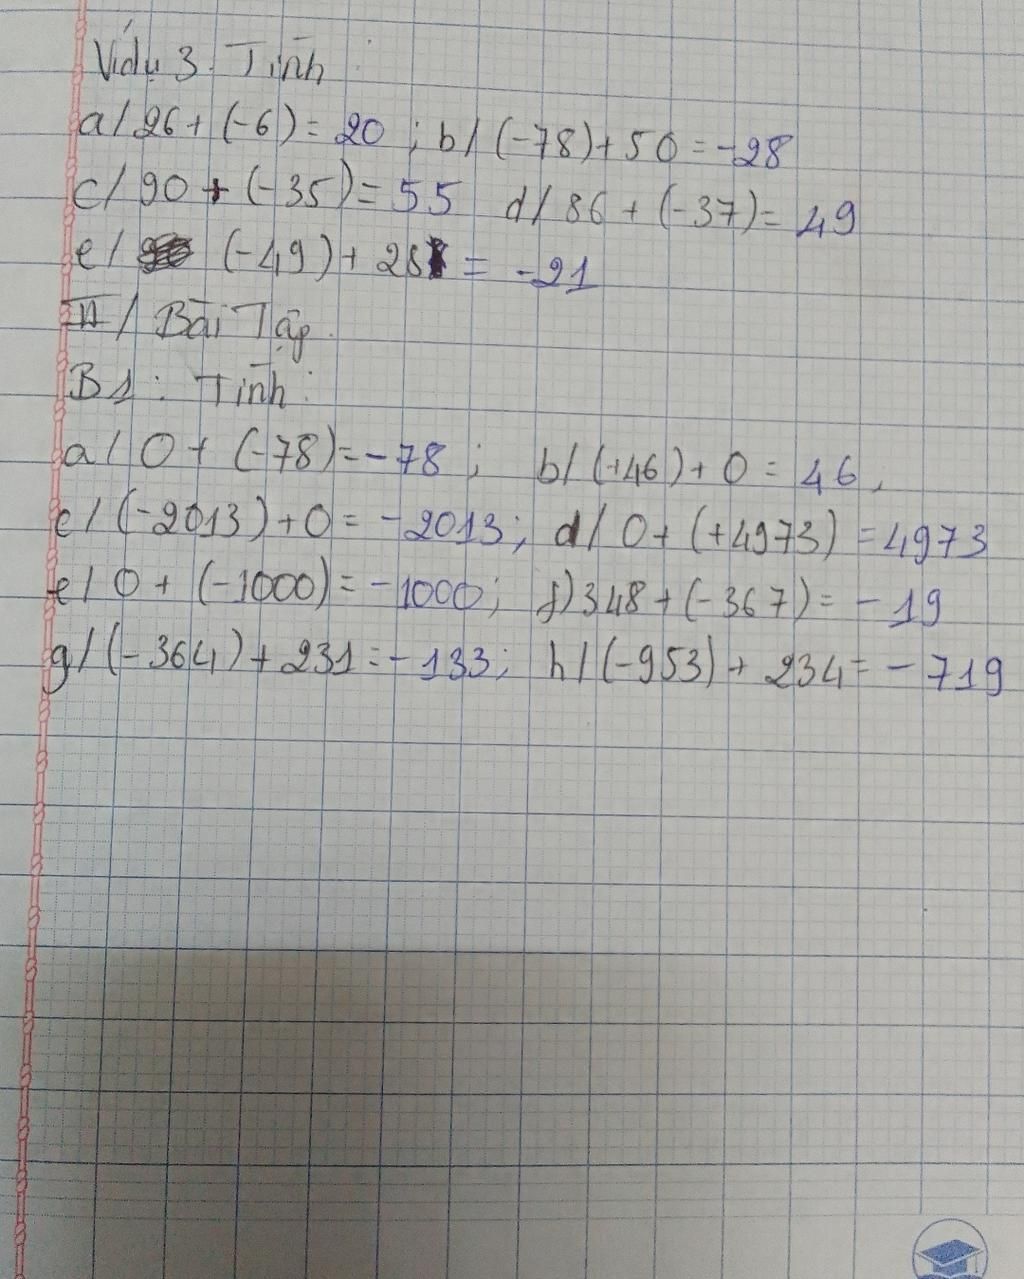 Ví dụ 3. Tính :
a/ 26 + (-6) = 20 ; b/ (-78) + 50 = -28
c/ 90 + (-35) = 55 d/ 86 + (-37) = 49
e/ (-49) + 28 = -21
II/ Bài Tập.
B1 : Tính :
a/ 0 + (-78) = -78 ; b/ (+46) + 0 = 46,
c/ (-2013) + 0 = -2013; d/ 0 + (+4973) = 4973
e/ 0 + (-1000) = -1000; f) 348 + (-367) = -19
g/ (-364) + 231 = -133; h/ (-953) + 234 = -719